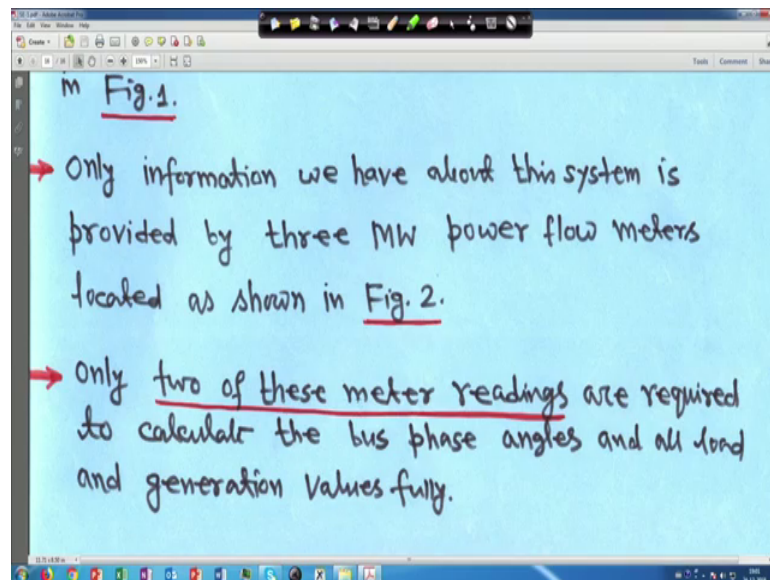 File Edit View Window Help
Create
Tools Comment
in Fig.1.
Only information we have about this system is
provided by three MW power flow meters
located as shown in Fig. 2.
Only two of these meter readings are required
to calculate the bus phase angles and all load
and generation values fully.